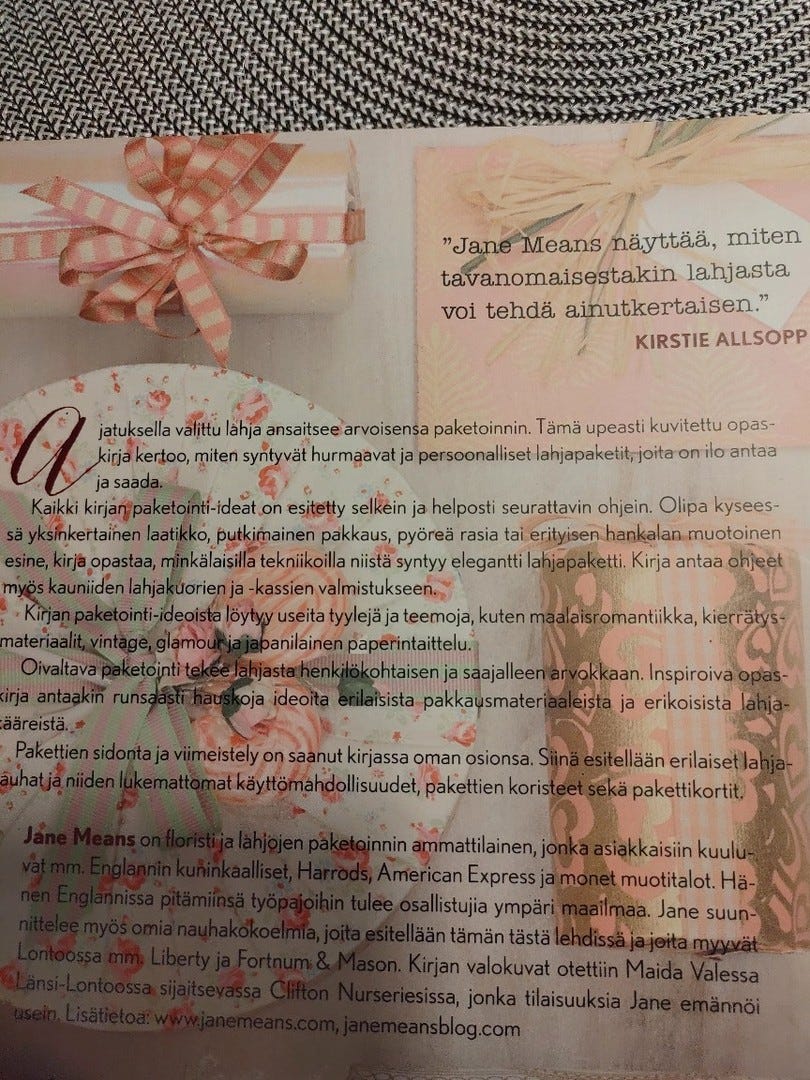 ”Jane Means näyttää, miten
tavanomaisestakin lahjasta
voi tehdä ainutkertaisen.”
KIRSTIE ALLSOPP
Ajatuksella valittu lahja ansaitsee arvoisensa paketoinnin. Tämä upeasti kuvitettu opas-
kirja kertoo, miten syntyvät hurmaavat ja persoonalliset lahjapaketit, joita on ilo antaa
ja saada.
Kaikki kirjan paketointi-ideat on esitetty selkein ja helposti seurattavin ohjein. Olipa kysees-
sä yksinkertainen laatikko, putkimainen pakkaus, pyöreä rasia tai erityisen hankalan muotoinen
esine, kirja opastaa, minkälaisilla tekniikoilla niistä syntyy elegantti lahjapaketti. Kirja antaa ohjeet
myös kauniiden lahjakuorien ja -kassien valmistukseen.
Kirjan paketointi-ideoista löytyy useita tyylejä ja teemoja, kuten maalaisromantiikka, kierrätys-
materiaalit, vintage, glamour ja japanilainen paperintaittelu.
Oivaltava paketointi tekee lahjasta henkilökohtaisen ja saajalleen arvokkaan. Inspiroiva opas-
kirja antaakin runsaasti hauskoja ideoita erilaisista pakkausmateriaaleista ja erikoisista lahja-
kääreistä.
Pakettien sidonta ja viimeistely on saanut kirjassa oman osionsa. Siinä esitellään erilaiset lahja-
nauhat ja niiden lukemattomat käyttömahdollisuudet, pakettien koristeet sekä pakettikortit.
Jane Means on floristi ja lahjojen paketoinnin ammattilainen, jonka asiakkaisiin kuulu-
vat mm. Englannin kuninkaalliset, Harrods, American Express ja monet muotitalot. Hä-
nen Englannissa pitämiinsä työpajoihin tulee osallistujia ympäri maailmaa. Jane suun-
nittelee myös omia nauhakokoelmia, joita esitellään tämän tästä lehdissä ja joita myyvät
Lontoossa mm. Liberty ja Fortnum & Mason. Kirjan valokuvat otettiin Maida Valessa
Länsi-Lontoossa sijaitsevassa Clifton Nurseriesissa, jonka tilaisuuksia Jane emännöi
usein. Lisätietoa: www.janemeans.com, janemeansblog.com